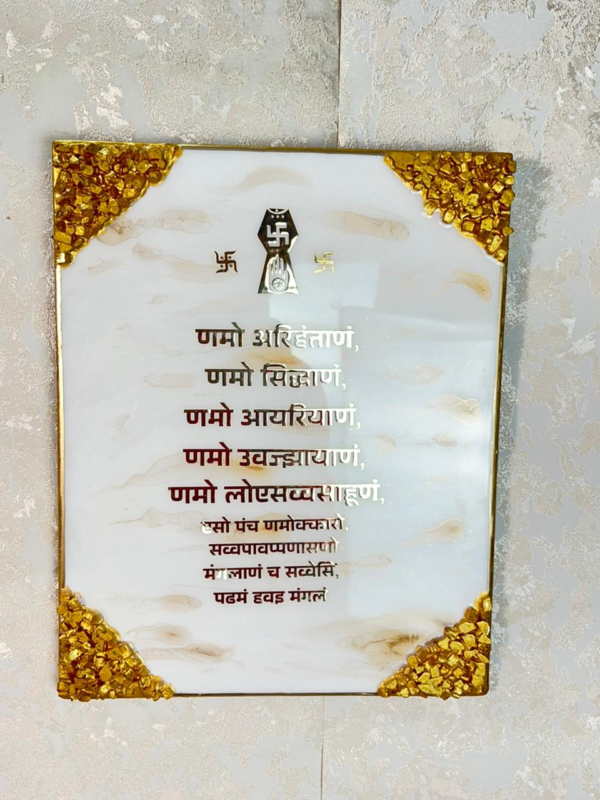 णमो अरिहंताणं,
णमो सिद्धाणं,
णमो आयरियाणं,
णमो उवज्झायाणं,
णमो लोएसव्वसाहूणं,
एसो पंच णमोक्कारो,
सव्वपावप्पणासणो
मंगलाणं च सव्वेसिं,
पढमं हवइ मंगलं